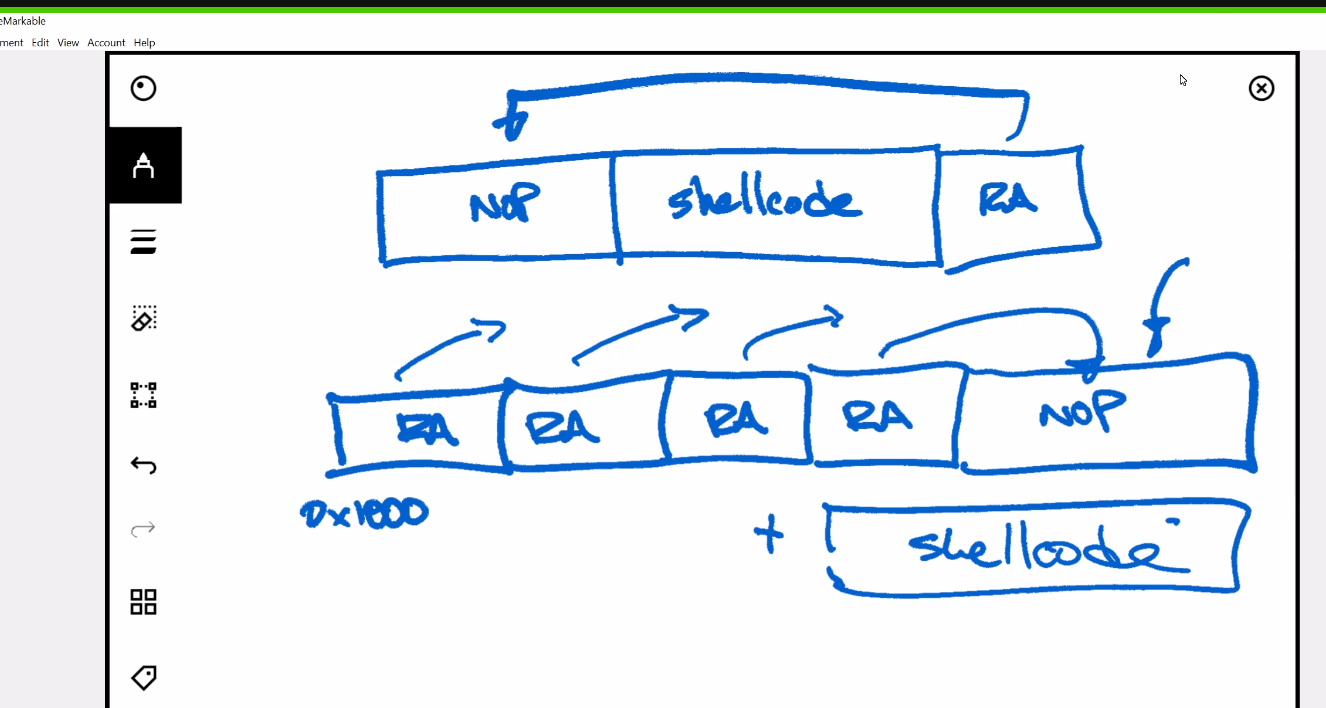 eMarkable
ment Edit View Account Help
NOP shellcode RA
RA RA RA RA NOP
0x1000
+ shellcode